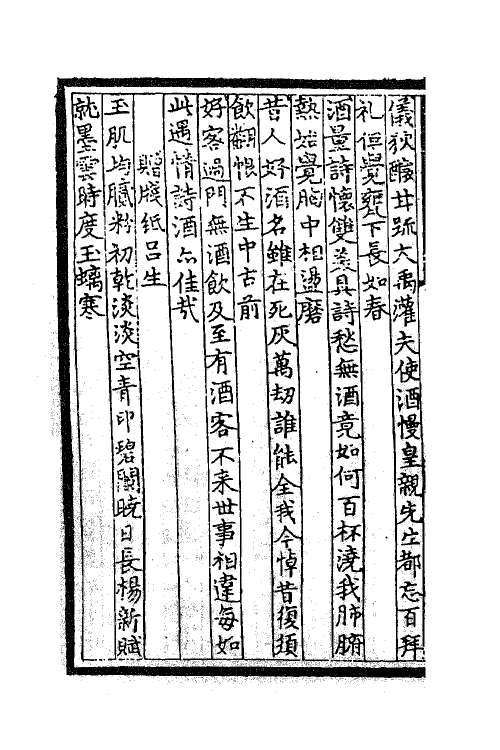 儀狄酸甘疏大禹灌夫使酒慢皇親先生都忘百拜
礼但覺甕下長如春
酒量詩懷雙美具詩愁無酒竟如何百杯澆我肺腑
熱始覺胸中相盪磨
昔人好酒名雖在死灰萬劫誰能全我今悼昔復須
飲翻恨不生中古前
好客過門無酒飲及至有酒客不来世事相違每如
此遇情詩酒亦佳哉
贈牋纸吕生
玉肌均膩粉初乾淡淡空青印碧闌曉日長楊新賦
就墨雲時度玉螭寒